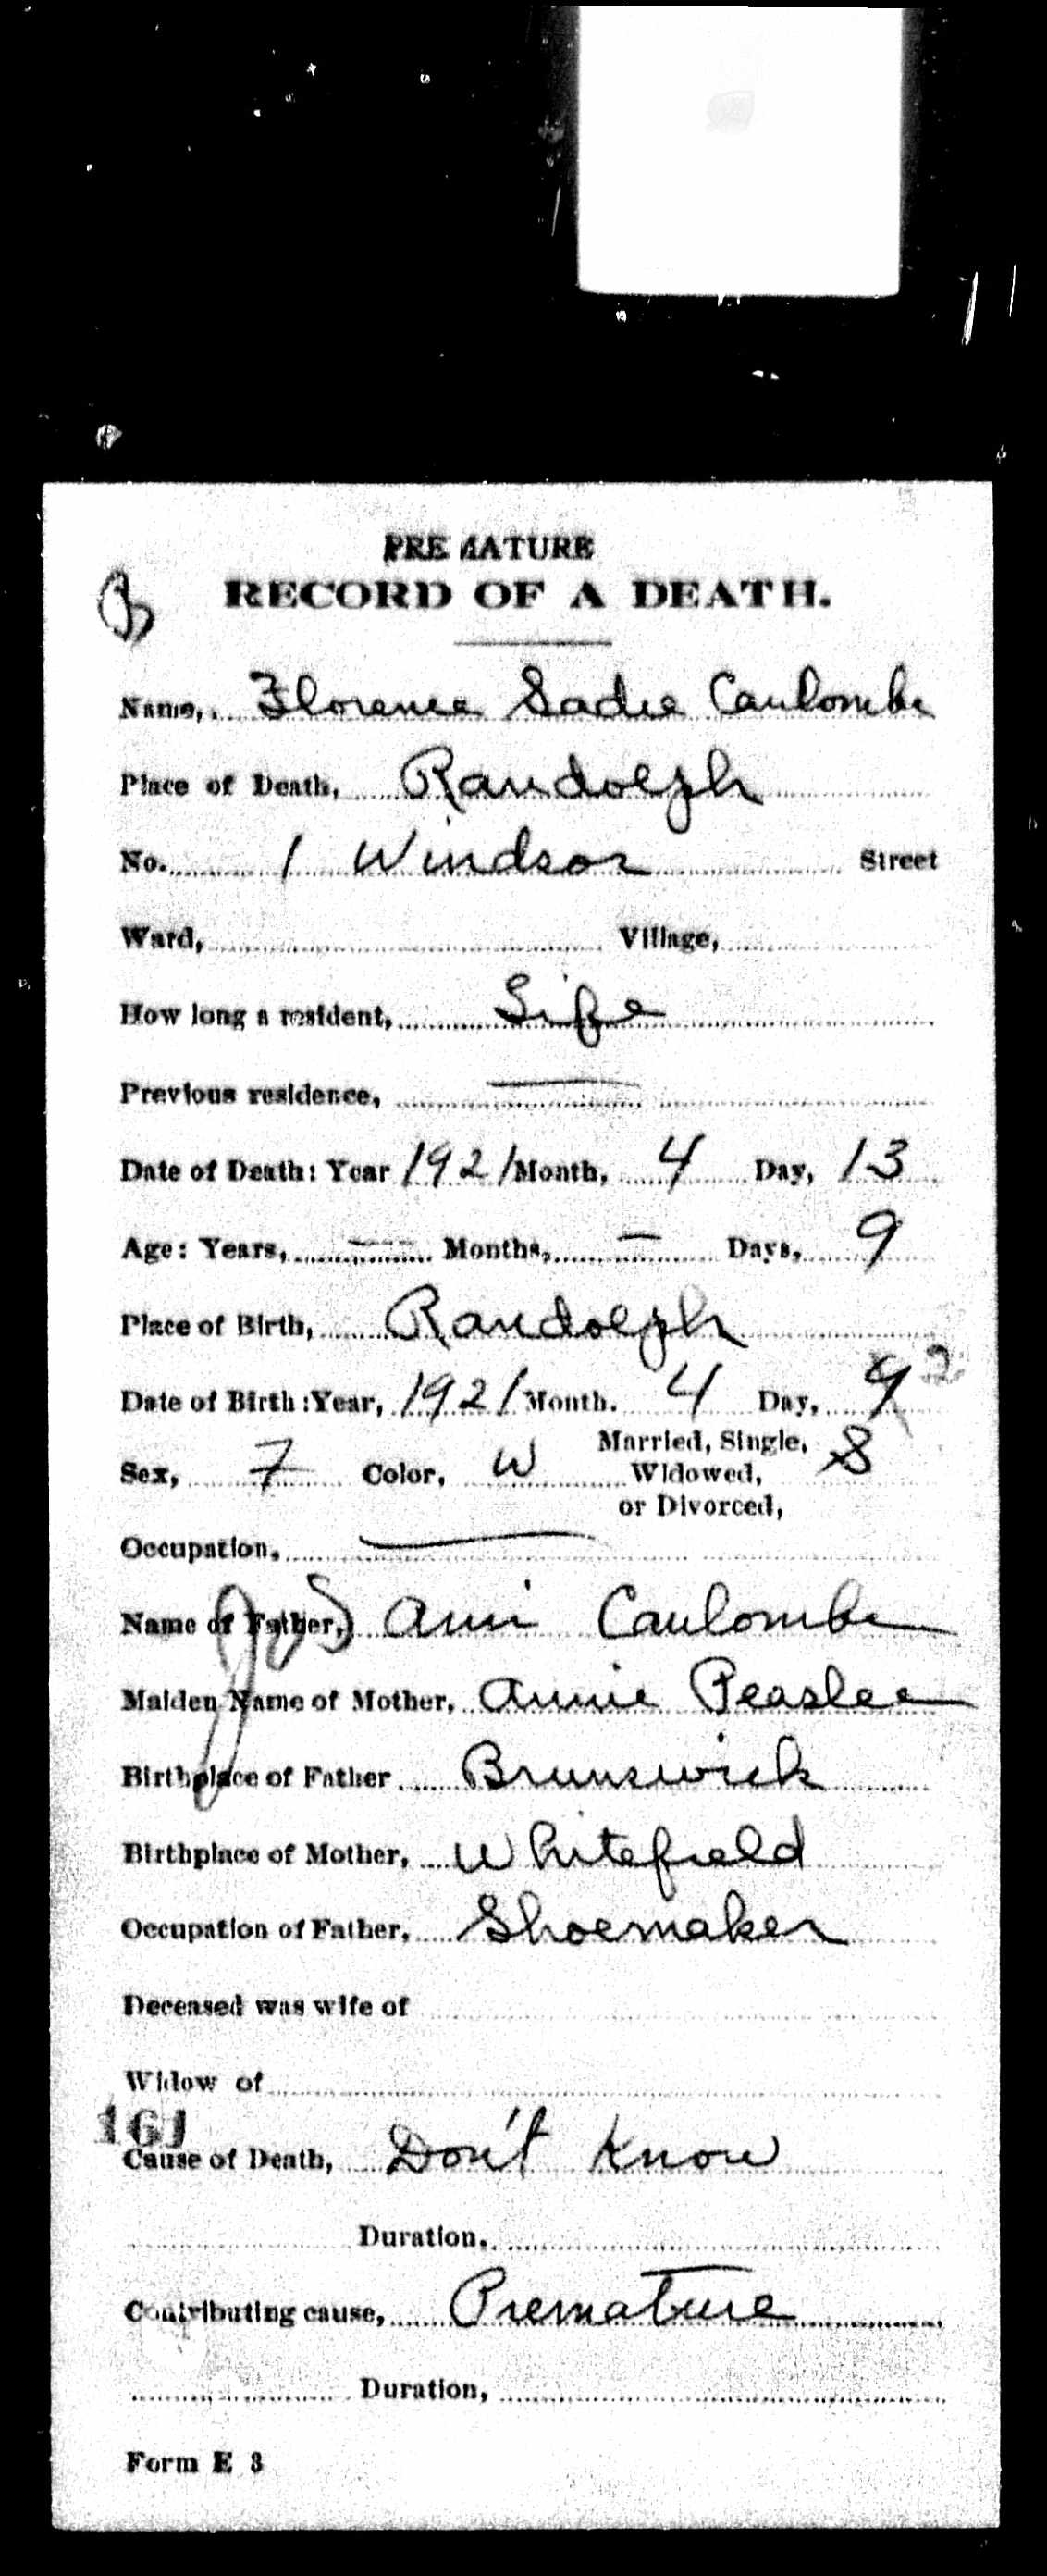 PREMATURE
RECORD OF A DEATH.
Name, Florence Sadie Caulombe
Place of Death, Randolph
No. 1 Windsor Street
Ward, Village,
How long a resident, Life
Previous residence, —
Date of Death: Year 1921 Month, 4 Day, 13
Age: Years, — Months, — Days, 9
Place of Birth, Randolph
Date of Birth: Year, 1921 Month. 4 Day, 4 2
Sex, F Color, W Married, Single, Widowed, or Divorced, S
Occupation, —
Name of Father, Caulombe
Maiden Name of Mother, Annie Peaslee
Birthplace of Father Brunswick
Birthplace of Mother, Whitefield
Occupation of Father, Shoemaker
Deceased was wife of
Widow of
161
Cause of Death, Don't Know
Duration,
Contributing cause, Premature
Duration,
Form E 3